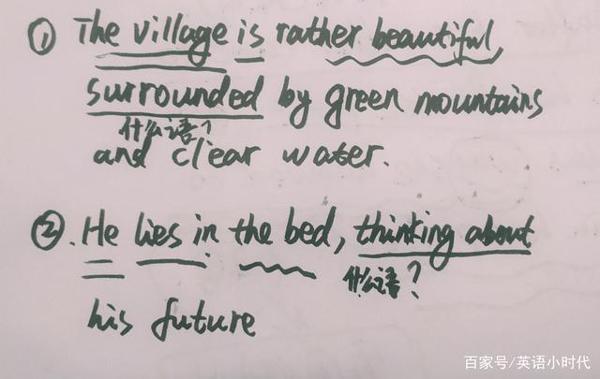 ① The village is rather beautiful,
surrounded by green mountains
什么语?
and clear water.
②. He lies in the bed, thinking about
什么语?
his future
百家号/英语小时代